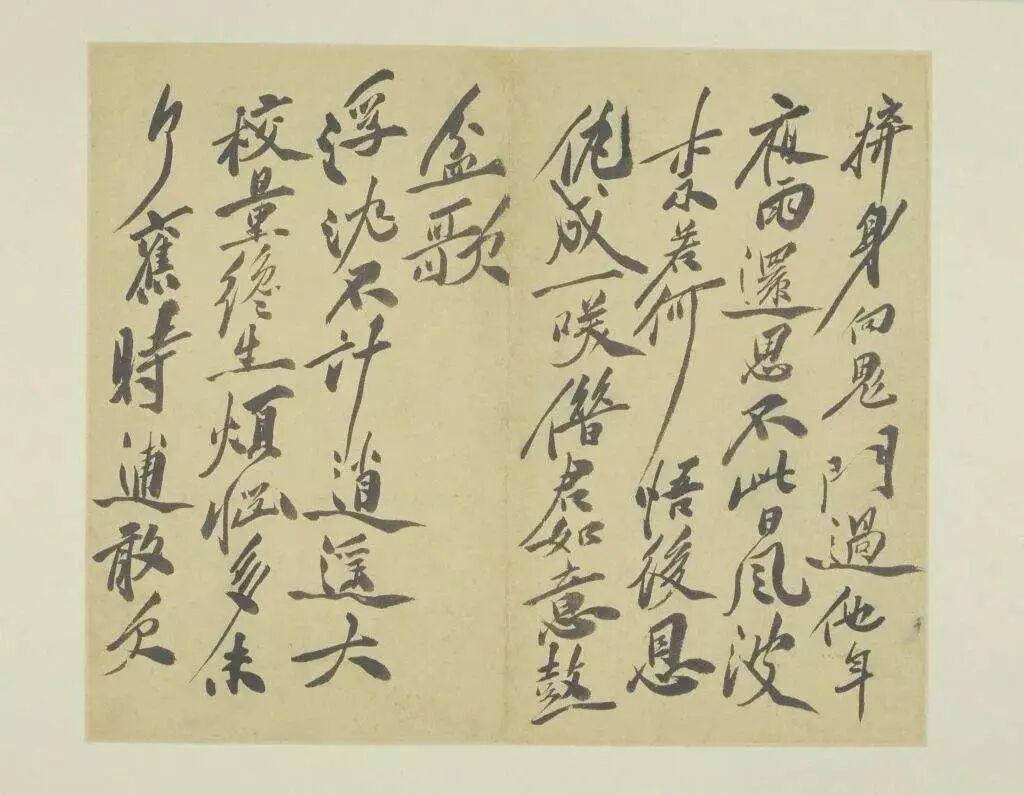 擠身向鬼門過他年
夜雨還思不此日風波
柰若何悟後恩
仇成一咲僭君如意鼓
盆歌
浮沈不計逍遥大
校量纔生煩惱多未
了舊時逋敢欠